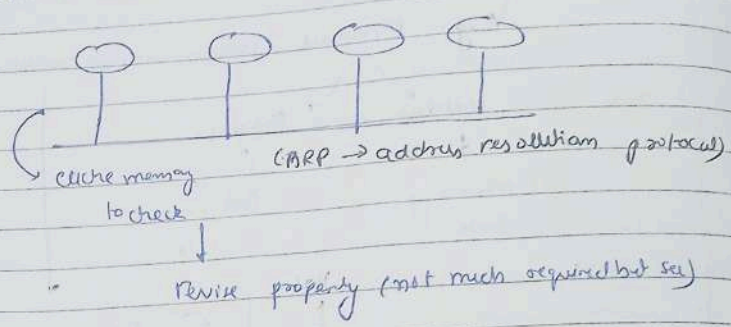 (ARP → address resolution protocol)
cache memory
to check
↓
revise property (not much required but see)